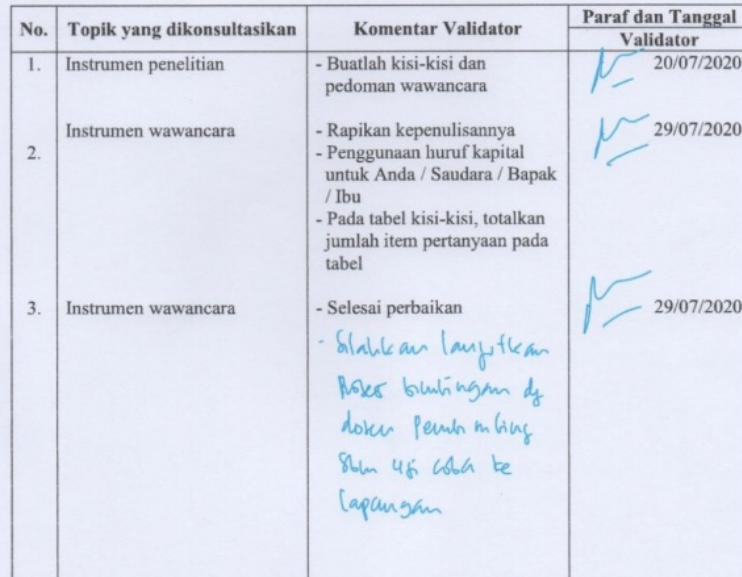 No. Topik yang dikonsultasikan Komentar Validator Paraf dan Tanggal
Validator
1. Instrumen penelitian - Buatlah kisi-kisi dan 20/07/2020
pedoman wawancara
Instrumen wawancara - Rapikan kepenulisannya 29/07/2020
2. - Penggunaan huruf kapital
untuk Anda / Saudara / Bapak
/ Ibu
- Pada tabel kisi-kisi, totalkan
jumlah item pertanyaan pada
tabel
3. Instrumen wawancara - Selesai perbaikan 29/07/2020
- Silahkan lanjutkan
bimbingan dg
dosen Pembimbing
sblm uji coba ke
lapangan